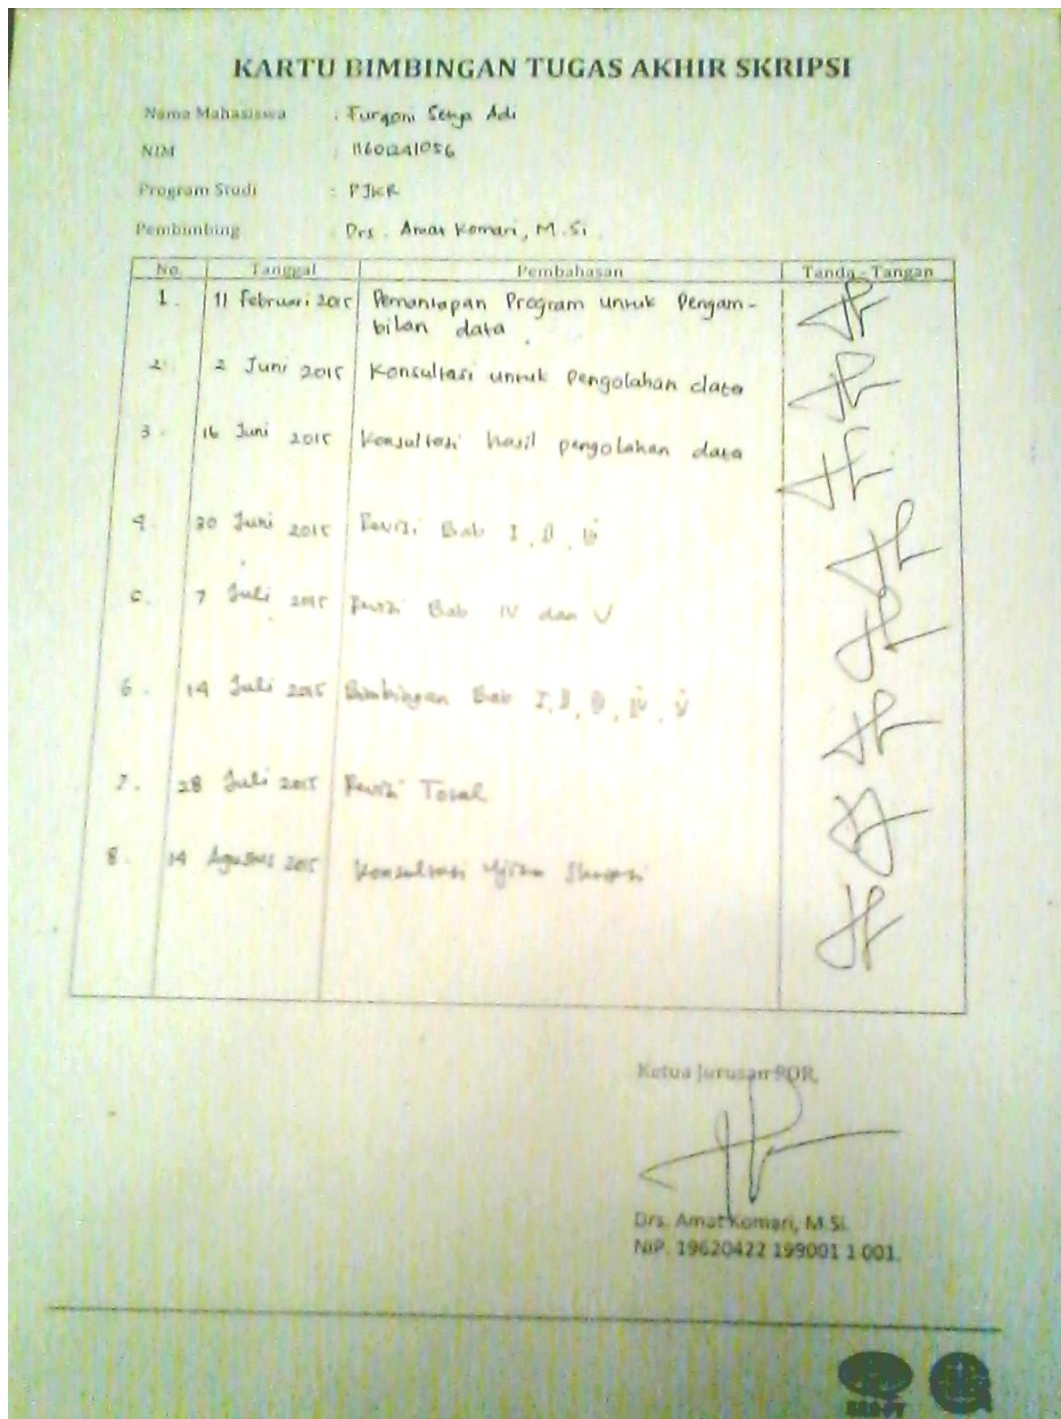 KARTU BIMBINGAN TUGAS AKHIR SKRIPSI
Nama Mahasiswa : Furqoni Setya Adi
NIM : 11601241056
Program Studi : PJKR
Pembimbing Drs. Amat Komari, M.Si.
No. Tanggal Pembahasan Tanda - Tangan
1. 11 Februari 2015 Pemantapan Program untuk Pengam-
bilan data
2. 2 Juni 2015 Konsultasi untuk Pengolahan data
3. 16 Juni 2015 Konsultasi hasil pengolahan data
4. 30 Juni 2015 Revisi Bab I, II, III
5. 7 Juli 2015 Revisi Bab IV dan V
6. 14 Juli 2015 Bimbingan Bab I, II, III, IV, V
7. 28 Juli 2015 Revisi Total
8. 14 Agustus 2015 Konsultasi Ujian Skripsi
Ketua Jurusan POR,
Drs. Amat Komari, M.Si.
NIP. 19620422 199001 1 001.